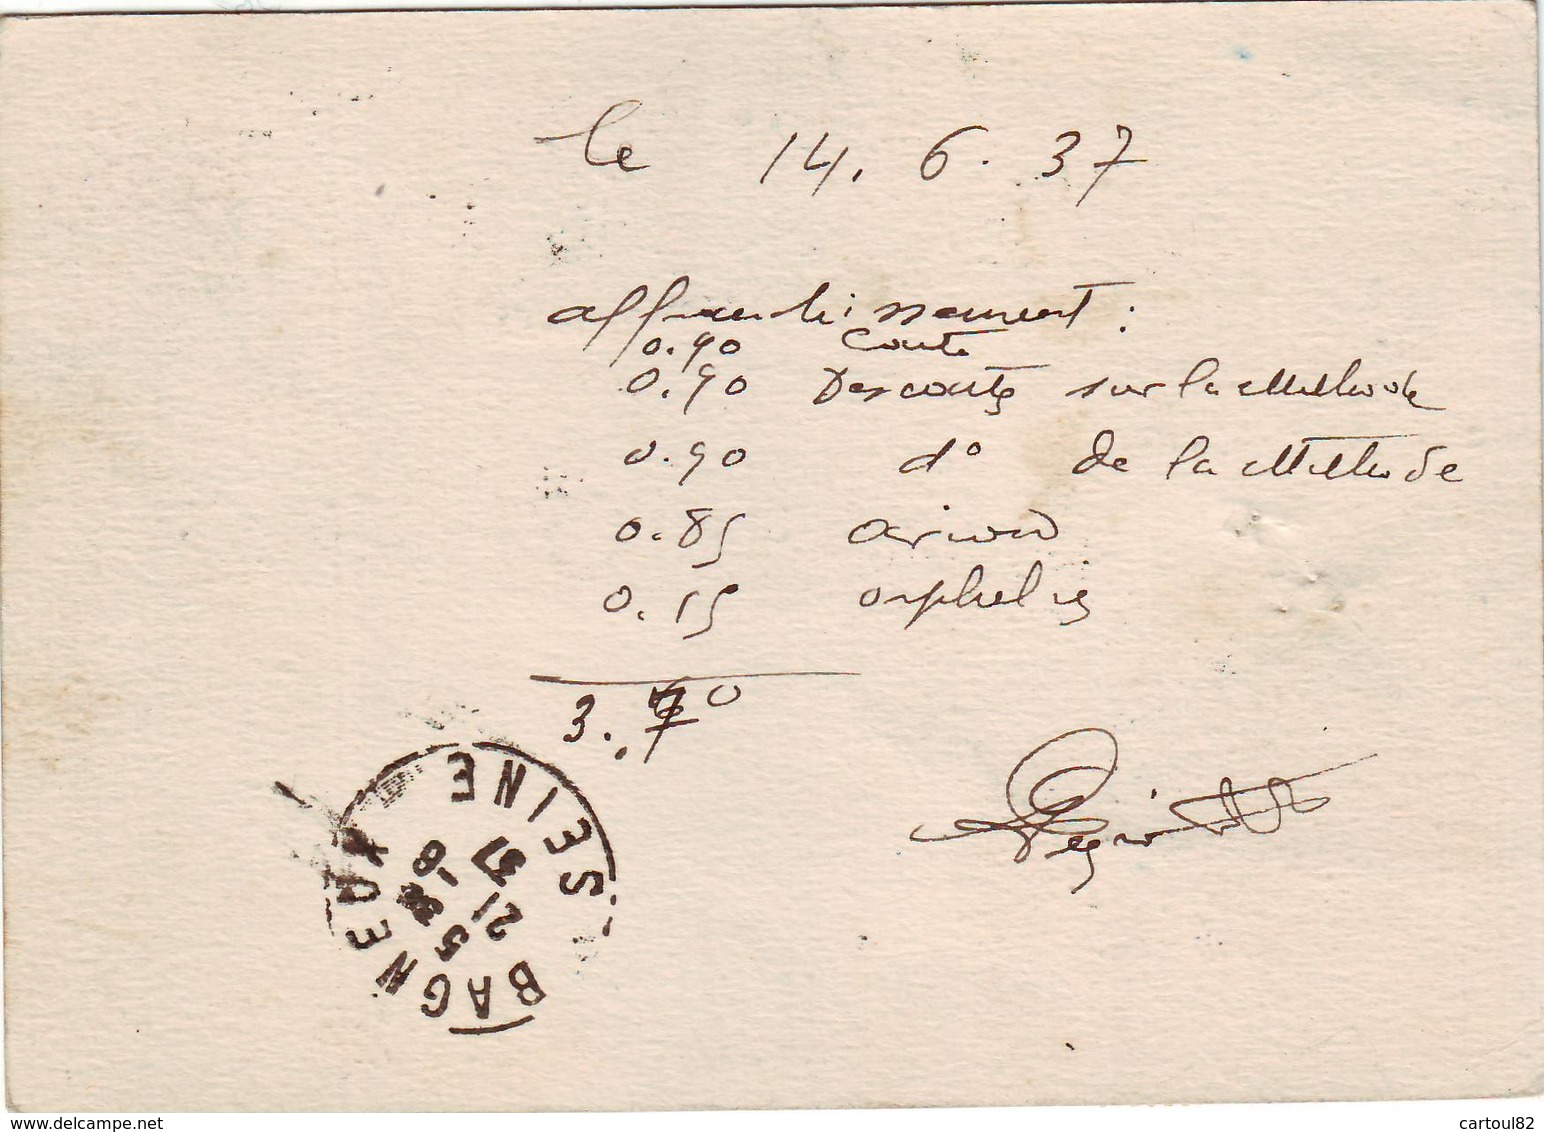 le 14. 6. 37
affranchissement :
0.90 Conte
0.90 Descartes sur la Methode
0.90 d° de la Methode
0.85 avion
0.15 orphelins
3.70
BAGNEUX
SEINE
21
5 -8
37
www.delcampe.net
cartoul82